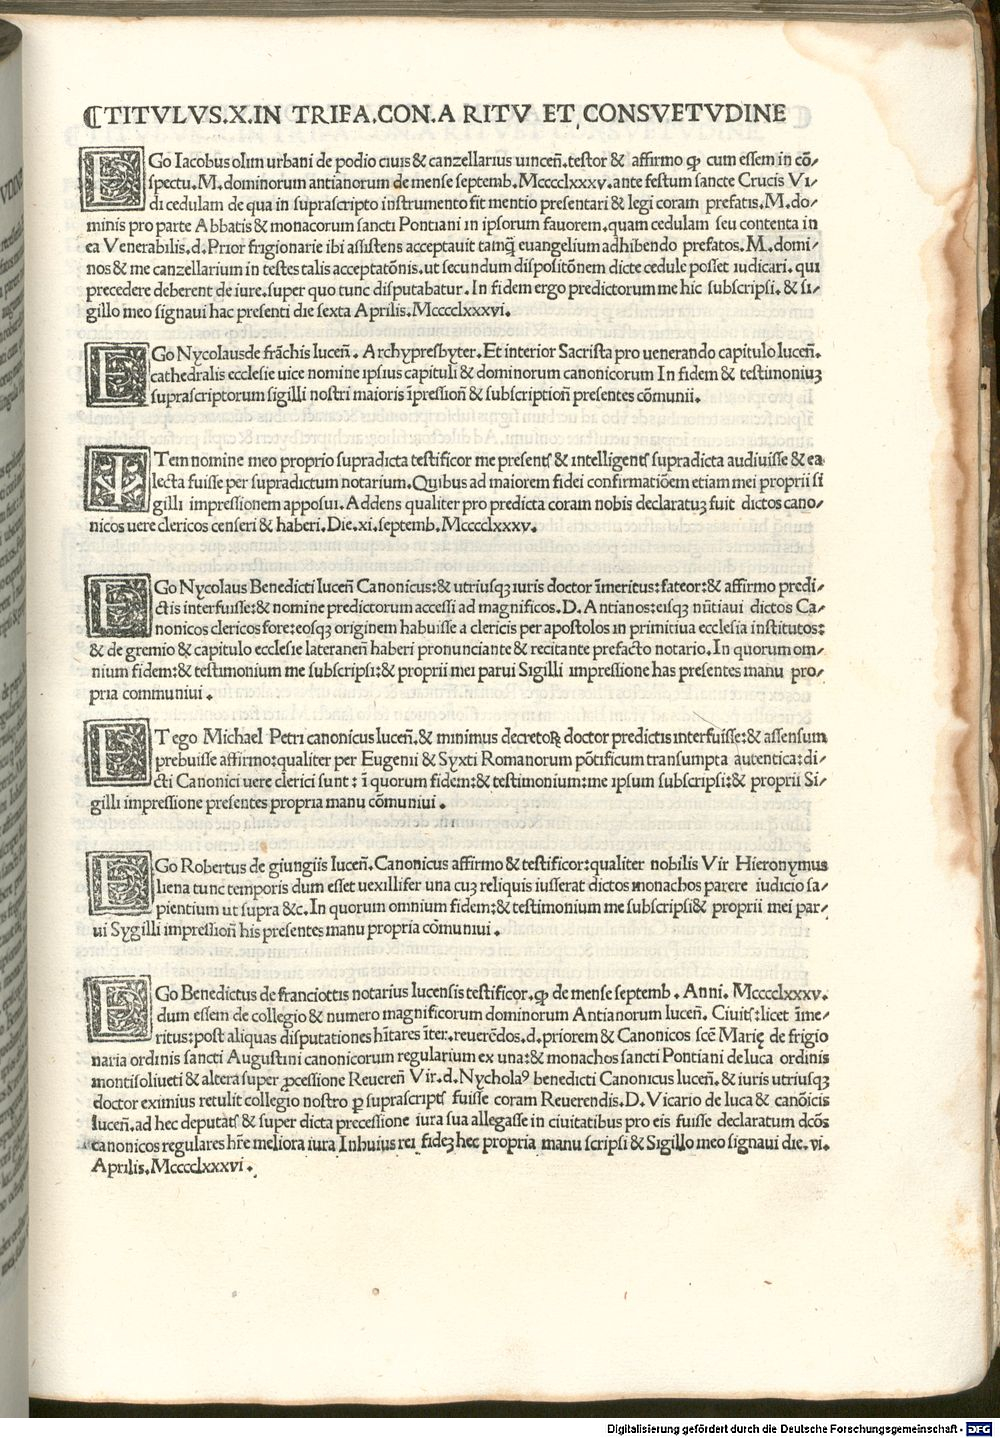 ¶TITVLVS.X.IN TRIFA.CON.A RITV ET CONSVETVDINE
EGo Iacobus olim urbani de podio ciuis & canzellarius uincen̄.testor & affirmo ꝙ cum essem in cō⸗
spectu.M.dominorum antianorum de mense septemb.Mcccclxxxv.ante festum sancte Crucis Vi⸗
di cedulam de qua in suprascripto instrumento fit mentio presentari & legi coram prefatis.M.do⸗
minis pro parte Abbatis & monacorum sancti Pontiani in ipsorum fauorem,quam cedulam seu contenta in
ea Venerabilis.d.Prior frigionarie ibi assistens acceptauit tamq̄ euangelium adhibendo prefatos.M.domi⸗
nos & me canzellarium in testes talis acceptatōnis.ut secundum dispositōnem dicte cedule posset iudicari.qui
precedere deberent de iure.super quo tunc disputabatur.In fidem ergo predictorum me hic subscripsi.& si⸗
gillo meo signaui hac presenti die sexta Aprilis.Mcccclxxxvi.
EGo Nycolausde frāchis lucen̄. Archypresbyter.Et interior Sacrista pro uenerando capitulo lucen̄.
cathedralis ecclesie uice nomine ipsius capituli & dominorum canonicorum In fidem & testimoniuꝫ
suprascriptorum sigilli nostri maioris īpression̄ & subscription̄ presentes cōmunii.
ITem nomine meo proprio supradicta testificor me present͛ & intelligent͛ supradicta audiuisse & ea
lecta fuisse per supradictum notarium.Quibus ad maiorem fidei confirmatiōem etiam mei proprii si
gilli impressionem apposui.Addens qualiter pro predicta coram nobis declaratuꝫ fuit dictos cano⸗
nicos uere clericos censeri & haberi.Die.xi.septemb.Mcccclxxxv.
EGo Nycolaus Benedicti lucen̄ Canonicus:& utriusqꝫ iuris doctor īmeritus:fateor:& affirmo predi⸗
ctis interfuisse:& nomine predictorum accessi ad magnificos.D.Antianos:eisqꝫ nūtiaui dictos Ca⸗
nonicos clericos fore:eosqꝫ originem habuisse a clericis per apostolos in primitiua ecclesia institutos:
& de gremio & capitulo ecclesie lateranen̄ haberi pronunciante & recitante prefacto notario.In quorum om⸗
nium fidem:& testimonium me subscripsi:& proprii mei parui Sigilli impressione has presentes manu pro⸗
pria communiui.
ET ego Michael Petri canonicus lucen̄.& minimus decretoꝝ doctor predictis interfuisse:& assensum
prebuisse affirmo:qualiter per Eugenii & Syxti Romanorum pōtificum transumpta autentica:di⸗
cti Canonici uere clerici sunt: ī quorum fidem:& testimonium:me ipsum subscripsi:& proprii Si⸗
gilli impressione presentes propria manu cōmuniui.
EGo Robertus de giungiis lucen̄.Canonicus affirmo & testificor:qualiter nobilis Vir Hieronymus
liena tunc temporis dum esset uexillifer una cuꝫ reliquis iusserat dictos monachos parere iudicio sa⸗
pientium ut supra &c.In quorum omnium fidem:& testimonium me subscripsi& proprii mei par⸗
ui Sygilli impression̄ his presentes manu propria cōmuniui.
EGo Benedictus de franciottis notarius lucensis testificor.ꝙ de mense septemb. Anni. Mcccclxxxv.
dum essem de collegio & numero magnificorum dominorum Antianorum lucen̄. Ciuit͛:licet īme⸗
ritus:post aliquas disputationes hītares īter.reuerēdos.d.priorem & Canonicos scē Marię de frigio
naria ordinis sancti Augustini canonicorum regularium ex una:& monachos sancti Pontiani de luca ordinis
montisoliueti & altera super ꝓcessione Reueren̄ Vir.d.Nycholaꝰ benedicti Canonicus lucen̄.& iuris utriusqꝫ
doctor eximius retulit collegio nostro ꝑ suprascript͛ fuisse coram Reuerendis.D.Vicario de luca & canōicis
lucen̄.ad hec deputat͛ & super dicta precessione iura sua allegasse in ciuitatibus pro eis fuisse declaratum dcōs
canonicos regulares hr̄e meliora iura Inhuius rei fidēꝫ hec propria manu scripsi & Sigillo meo signaui die.vi.
Aprilis.Mcccclxxxvi.
Digitalisierung gefördert durch die Deutsche Forschungsgemeinschaft - DFG